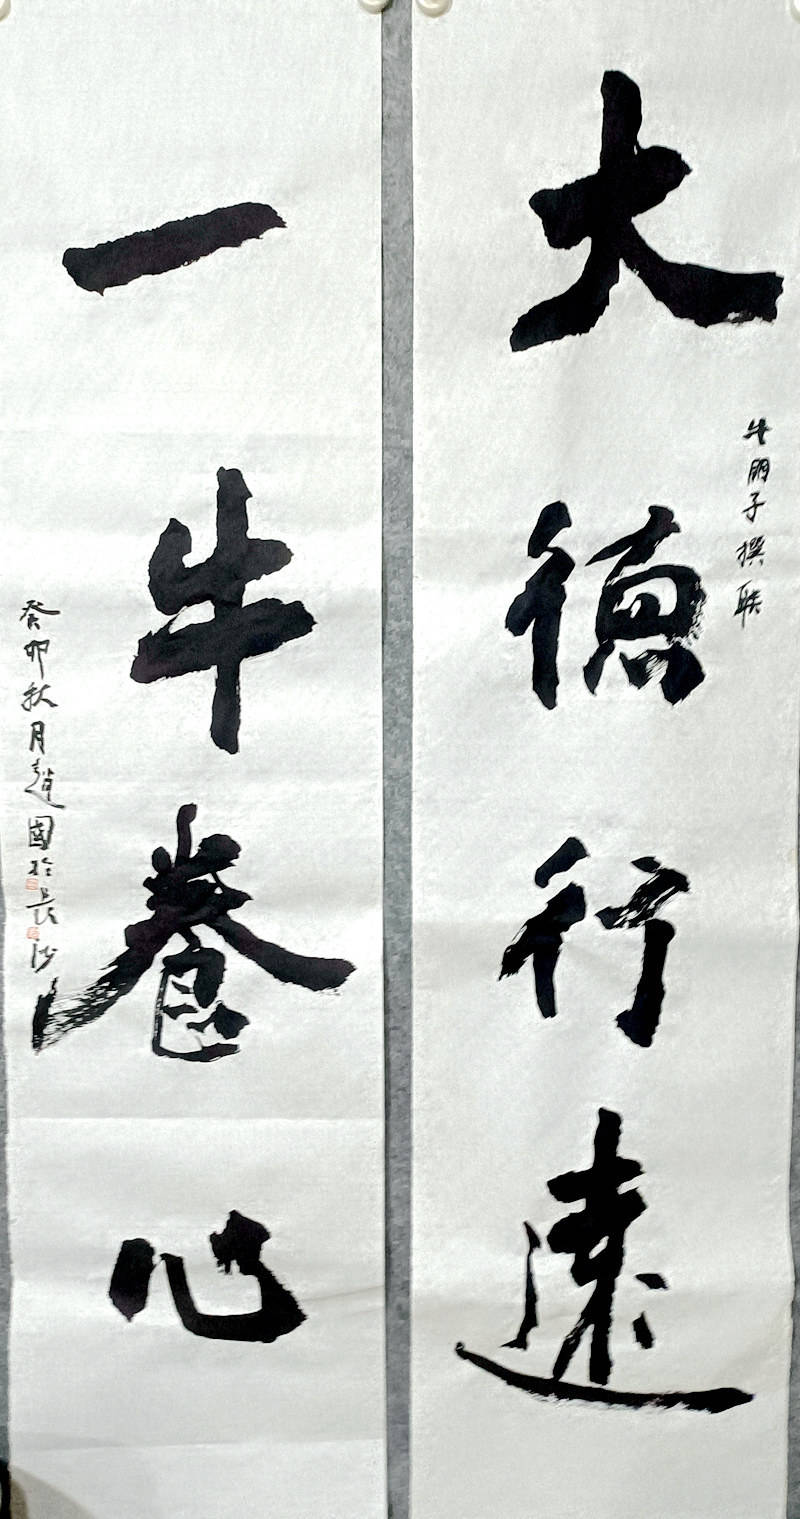 大德行遠
牛朋子撰联
一牛卷心
癸卯秋月趙國於長沙